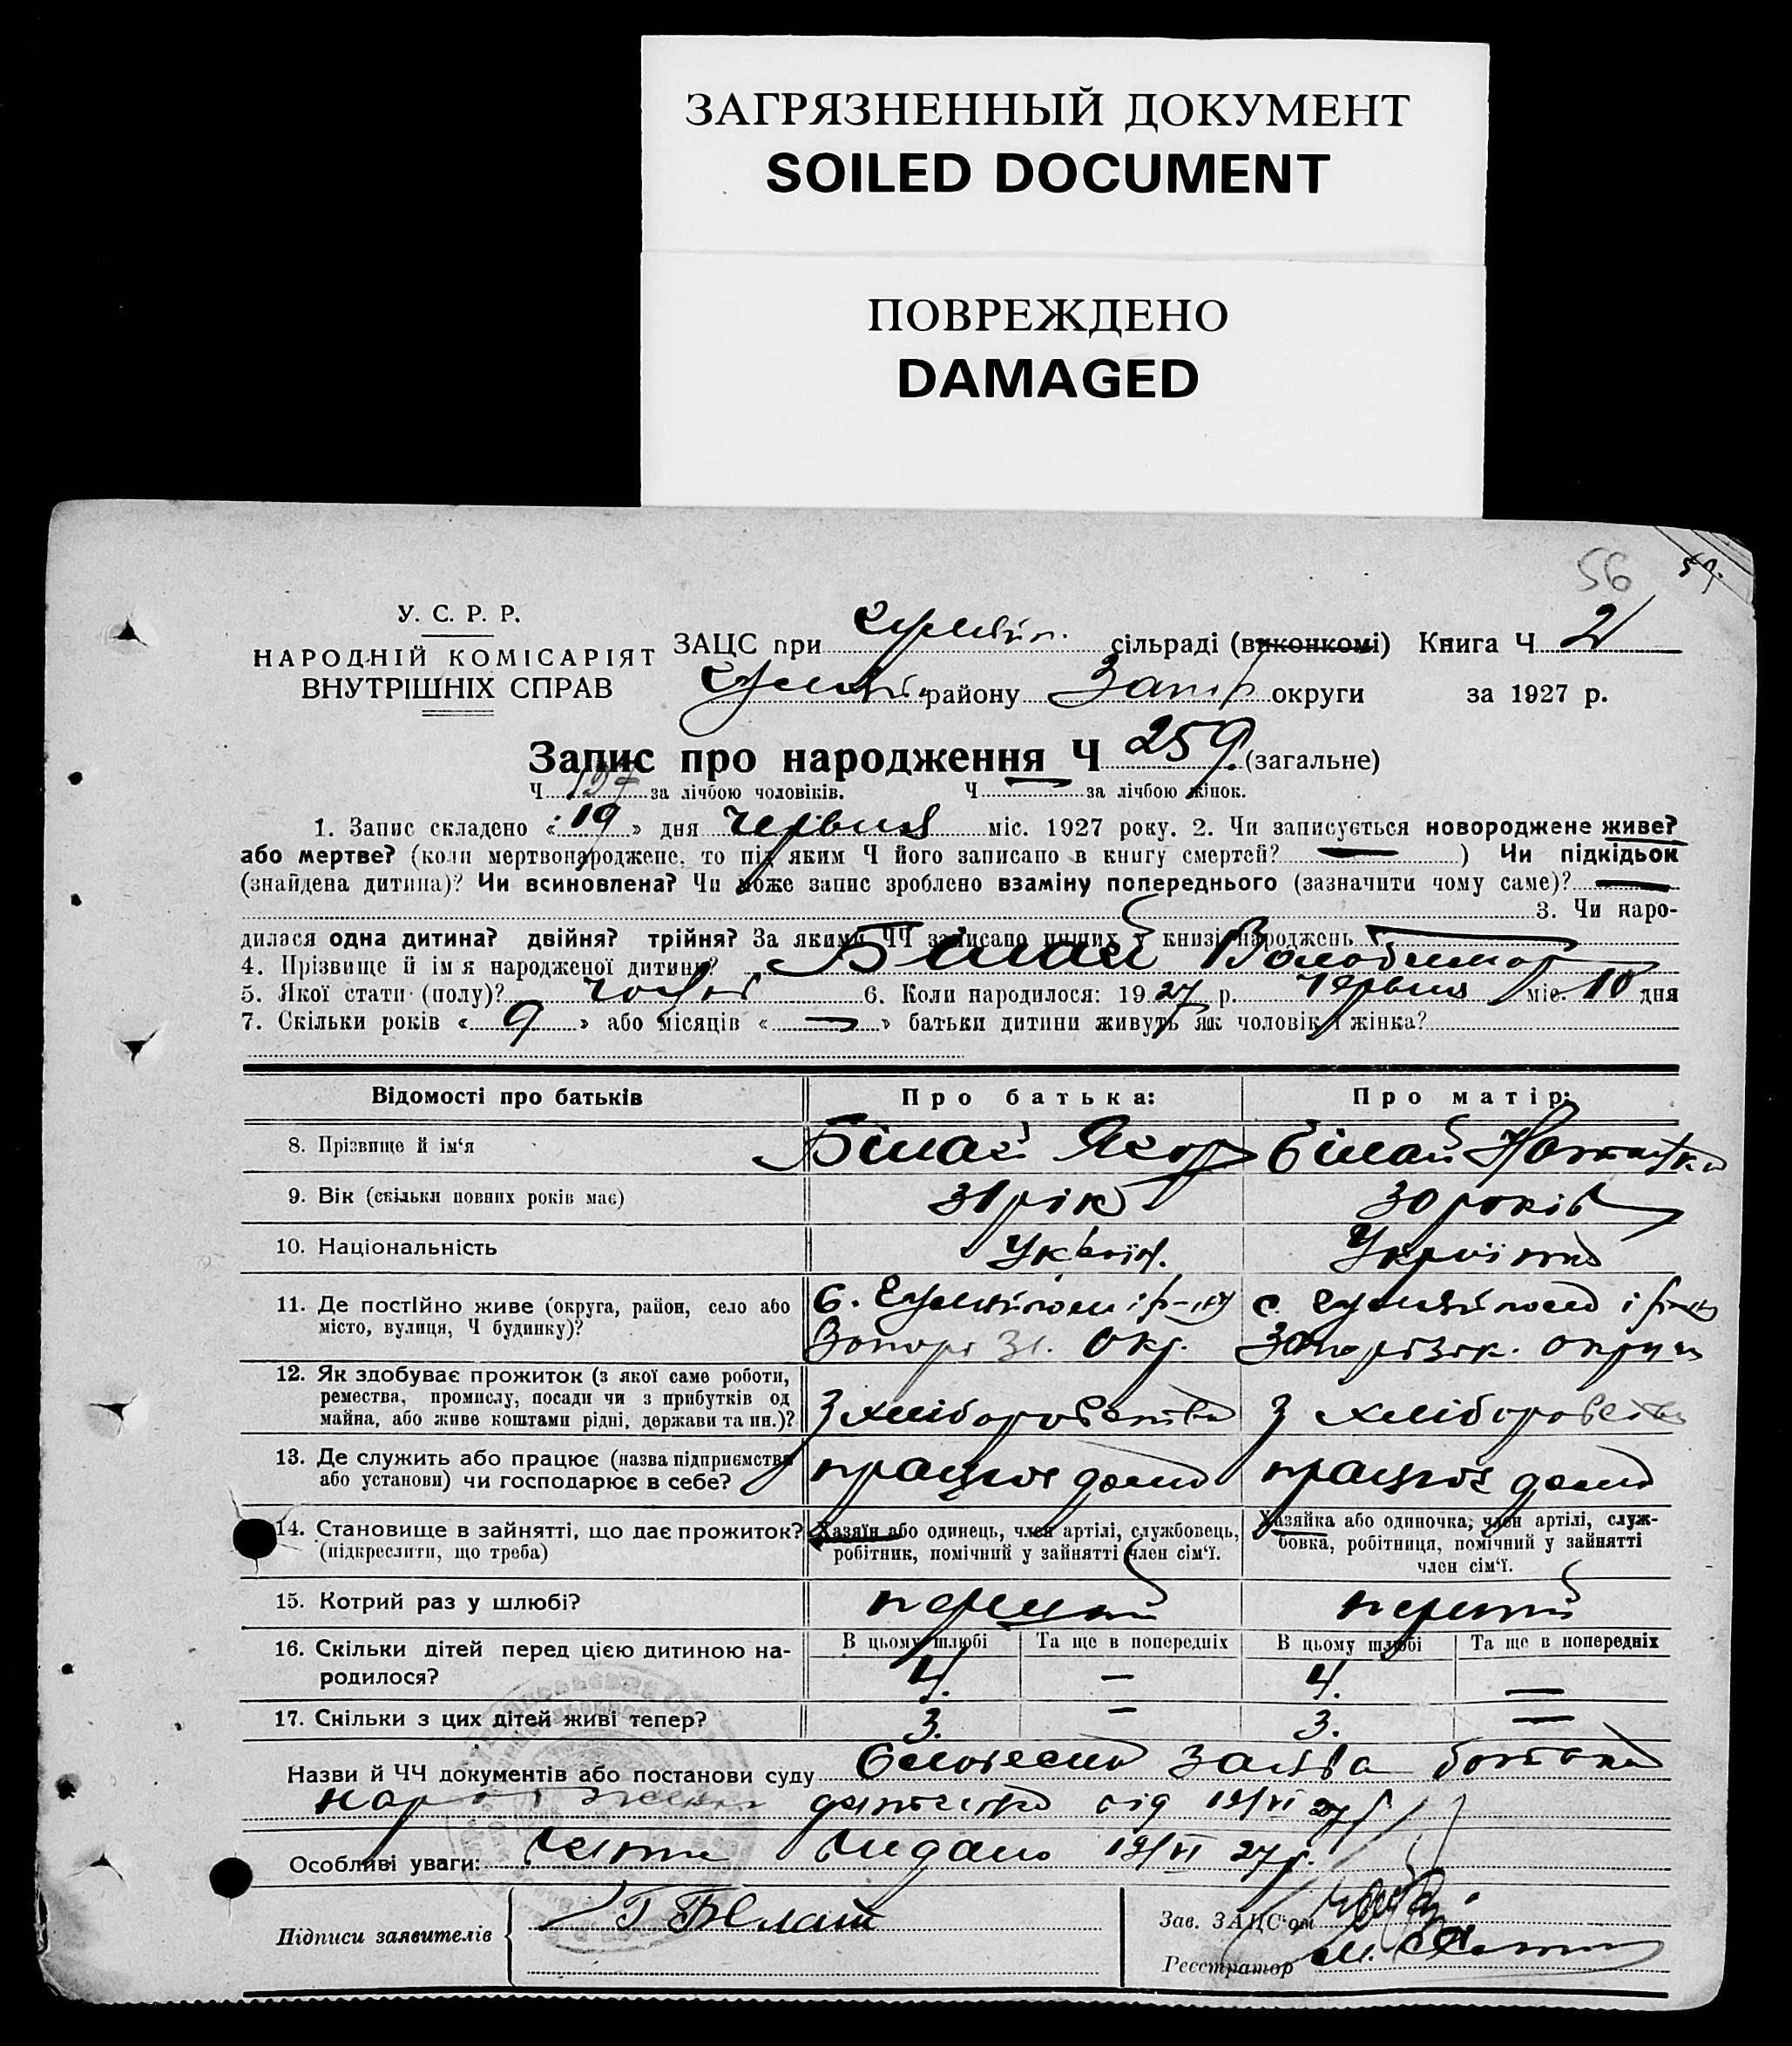 ЗАГРЯЗНЕННЫЙ ДОКУМЕНТ
SOILED DOCUMENT
ПОВРЕЖДЕНО
DAMAGED
56
У. С. Р. Р.
НАРОДНІЙ КОМІСАРІЯТ
ВНУТРІШНІХ СПРАВ
ЗАЦС при сільраді (виконкомі) Книга Ч 2
району Запор округи за 1927 р.
Запис про народження Ч 259. (загальне)
Ч 127 за лічбою чоловіків. Ч — за лічбою жінок.
1. Запис складено «19» дня червня міс. 1927 року. 2. Чи записується новороджене живе?
або мертве? (коли мертвонароджене, то під яким Ч його записано в книгу смертей? — ) Чи підкідьок
(знайдена дитина)? Чи всиновлена? Чи може запис зроблено взаміну попереднього (зазначити чому саме)? —
3. Чи наро-
дилася одна дитина? двійня? трійня? За якими ЧЧ записано инших у книзі народжень —
4. Прізвище й ім'я народженої дитини? Білай Володимир
5. Якої стати (полу)? 6. Коли народилося: 1927 р. червня міс. 10 дня
7. Скільки років «9» або місяців «—» батьки дитини живуть як чоловік і жінка?
Відомості про батьків Про батька: Про матір:
8. Прізвище й ім'я Білай Білай
9. Вік (скільки повних років має) 31 рік 30 років
10. Національність Україн. Українка
11. Де постійно живе (округа, район, село або
місто, вулиця, Ч будинку)?
с. і р-ну с. і р-ну
Запоріз. Окр. Запорізьк. округи
12. Як здобуває прожиток (з якої саме роботи,
ремества, промислу, посади чи з прибутків од
майна, або живе коштами рідні, держави та ин.)?
З хліборобства З хліборобства
13. Де служить або працює (назва підприємства
або установи) чи господарює в себе?
працює дома працює дома
14. Становище в зайнятті, що дає прожиток?
(підкреслити, що треба)
Хазяїн або одинець, член артілі, службовець,
робітник, помічний у зайнятті член сім'ї.
Хазяйка або одиночка, член артілі, служ-
бовка, робітниця, помічний у зайнятті
член сім'ї.
15. Котрий раз у шлюбі? перший перший
16. Скільки дітей перед цією дитиною на-
родилося?
В цьому шлюбі Та ще в попередніх В цьому шлюбі Та ще в попередніх
4. — 4. —
17. Скільки з цих дітей живі тепер? 3. — 3. —
Назви й ЧЧ документів або постанови суду Словесна заява батька
від 19/VI 27 р.
Особливі уваги: видано 19/VI 27 р.
Підписи заявителів
Зав. ЗАЦС'ом
Реєстратор